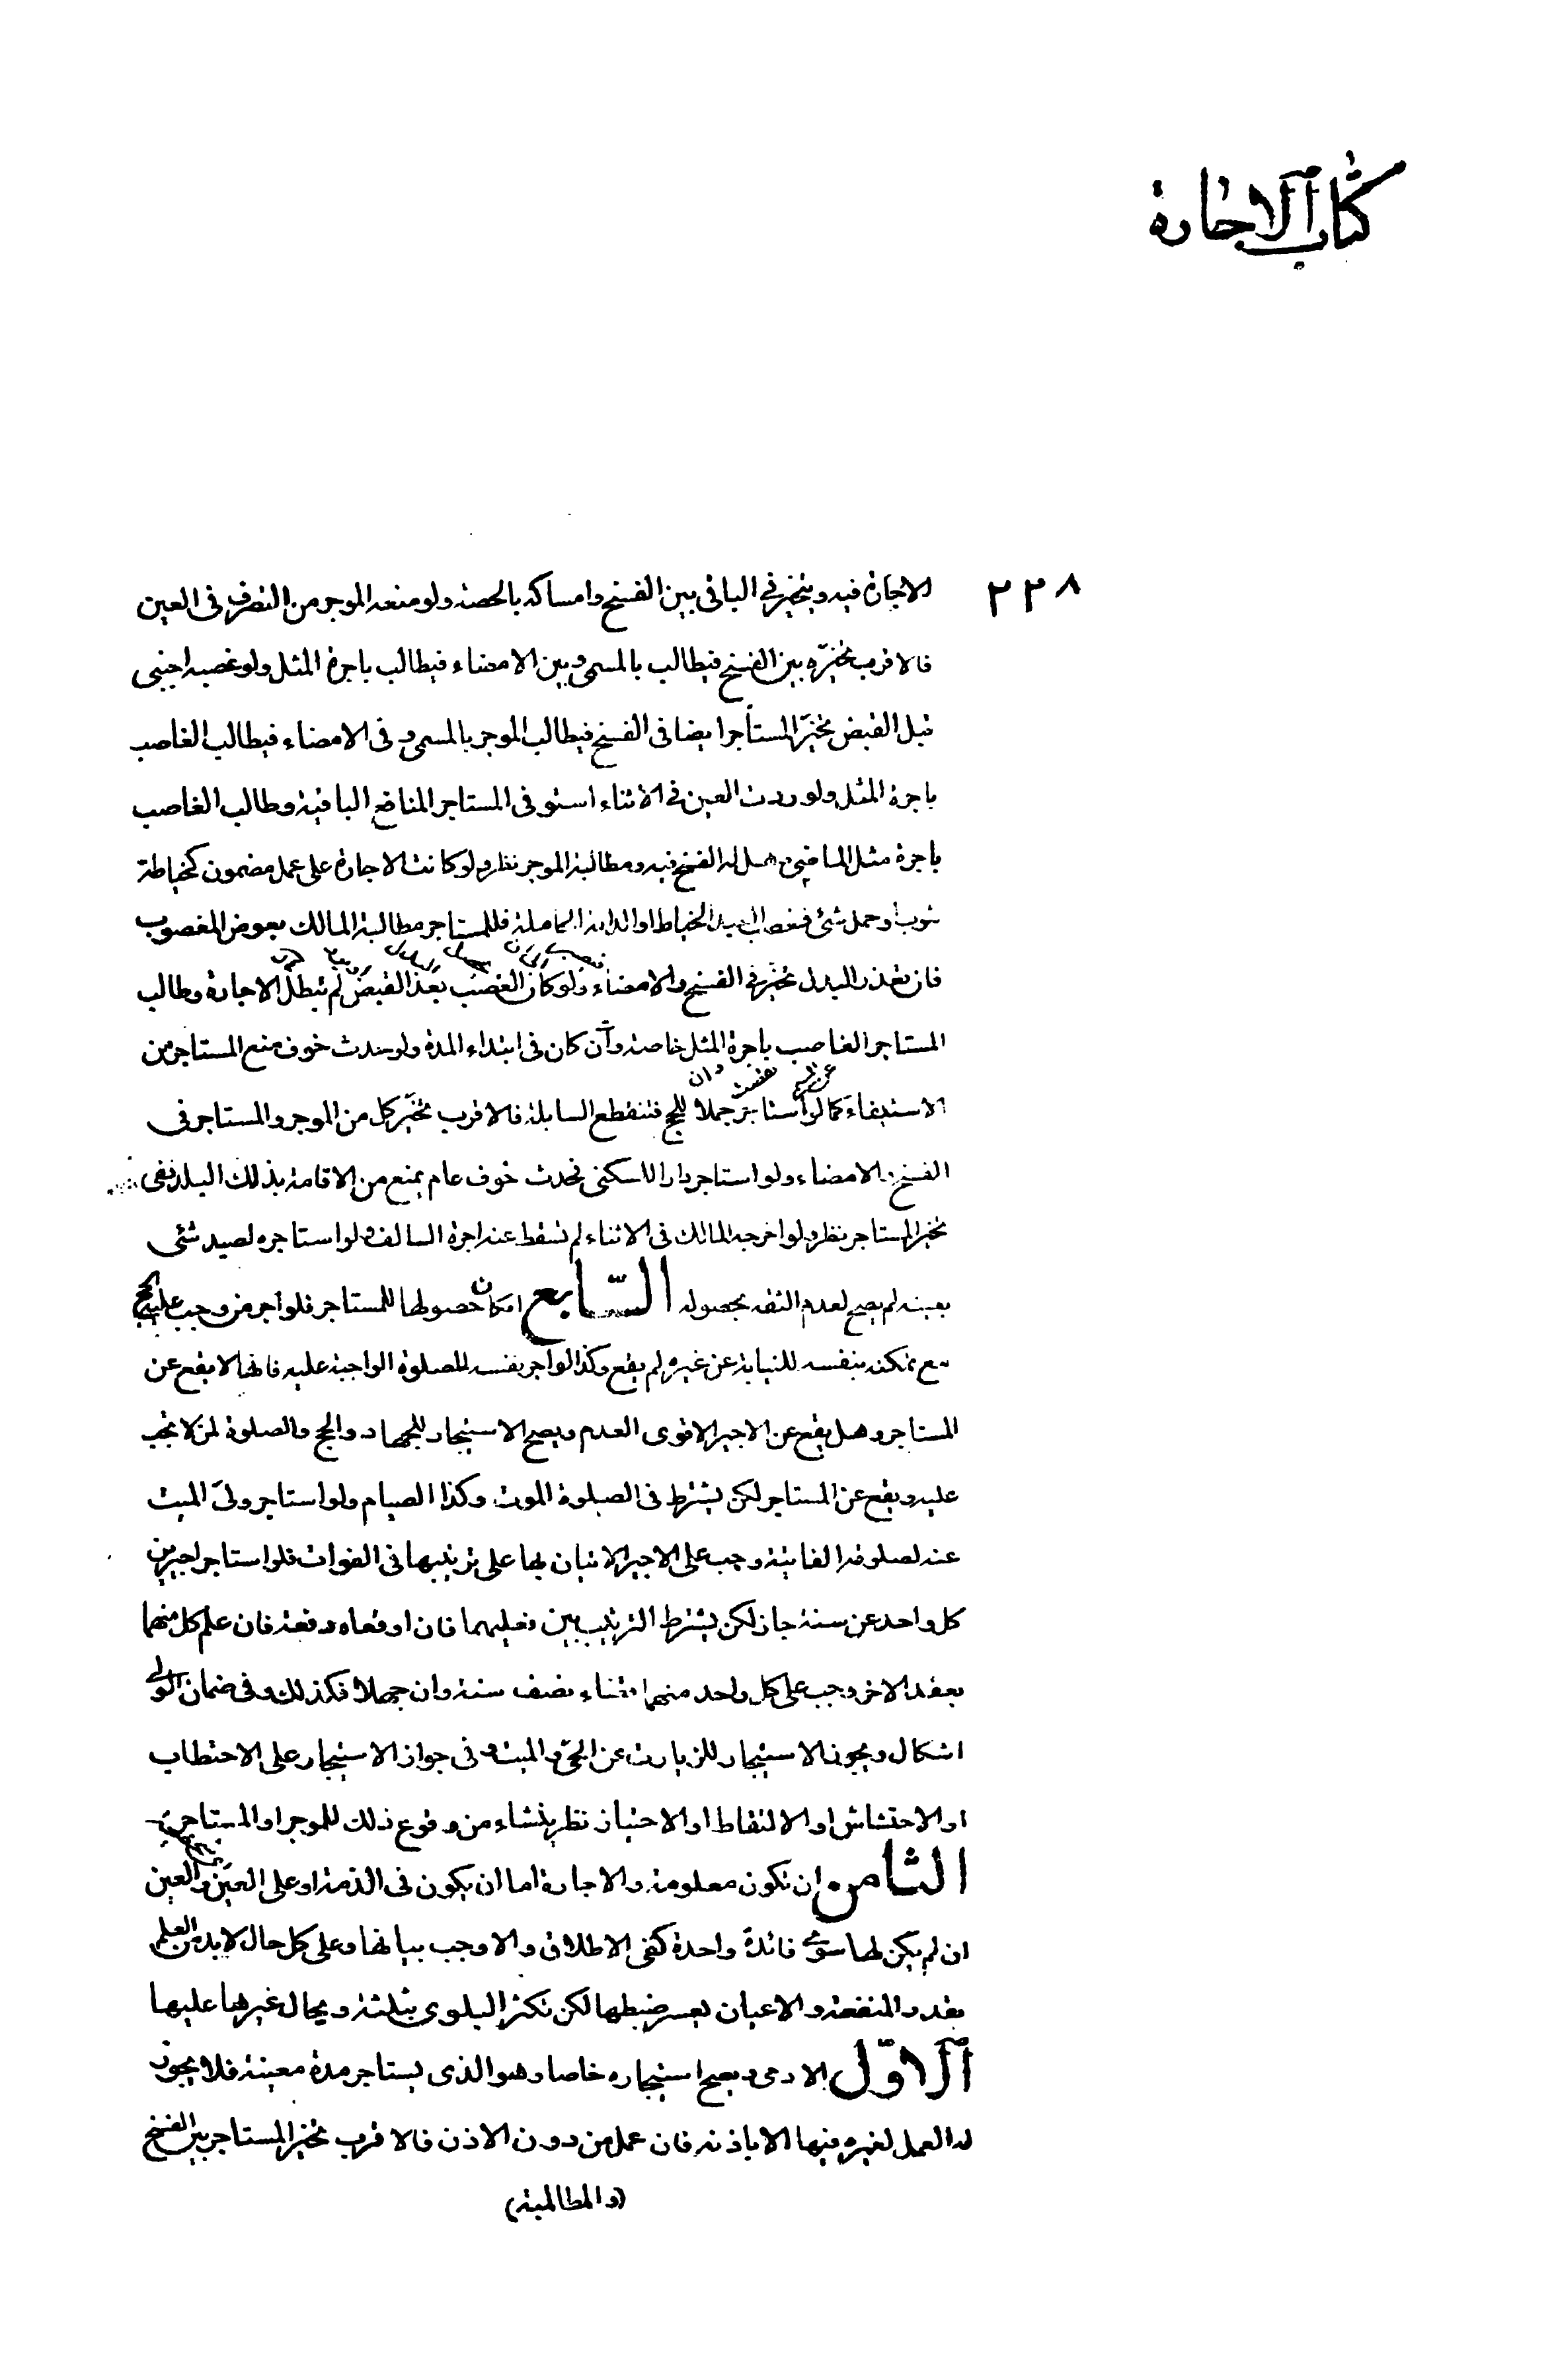 كتاب الاجارة
٢٢٨
الاجارة فيه ويتخير في الباقي بين الفسخ وامساكه بالحصة ولو منعه الموجر من التصرف في العين
فالاقرب تخيّره بين الفسخ فيطالب بالمسمى وبين الامضاء فيطالب باجرة المثل ولو غصبه اجنبي
قبل القبض تخيّر المستأجر ايضا في الفسخ فيطالب الموجر بالمسمى وفي الامضاء فيطالب الغاصب
باجرة المثل ولو ردت العين في الاثناء استوفى المستاجر المنافع الباقية وطالب الغاصب
باجرة مثل الماضي وهل له الفسخ فيه ومطالبة الموجر نظر ولو كانت الاجارة على عمل مضمون كخياطة
ثوب او حمل شئ فغصب العبد الخياط او الدابة الحاملة فللمستاجر مطالبة المالك بعوض المغصوب
فان تعذر البدل تخير في الفسخ والامضاء ولو كان الغصب بعد القبض لم تبطل الاجارة وطالب
المستاجر الغاصب باجرة المثل خاصة وان كان في ابتداء المدة ولو حدث خوف منع المستاجر من
الاستيفاء كما لو استاجر جملا للحج فتنقطع السابلة فالاقرب تخيّر كل من الموجر والمستاجر في
الفسخ والامضاء ولو استاجر دارا للسكنى فحدث خوف عام يمنع من الاقامة بذلك البلد ففي
تخير المستاجر نظر ولو اخرجه المالك في الاثناء لم تسقط عنه اجرة السالف ولو استاجره لصيد شئ
بعينه لم يصح لعدم الثقة بحصوله السّابع امكان حصولها للمستاجر فلو آجر من وجب عليه الحج
مع تمكنه بنفسه للنيابة عن غيره لم يقع وكذا لو اجر نفسه للصلوة الواجبة عليه فانها لا يقع عن
المستاجر وهل يقع عن الاجير الاقوى العدم ويصح الاستيجار للجهاد والحج والصلوة لمن لا تجب
عليه ويقع عن المستاجر لكن يشترط في الصلوة الموت وكذا الصيام ولو استاجر ولىّ الميت
عنه لصلوته الفايتة وجب على الاجير الاتيان بها على ترتيبها في الفوات فلو استاجر اجيرين
كل واحد عن سنة جاز لكن يشترط الترتيب بين فعليهما فان اوقعاه دفعة فان علم كل منهما
بعقد الاخر وجب على كل واحد منهما قضاء نصف سنة وان جهلا فكذلك وفي ضمان الولي
اشكال ويجوز الاستيجار للزيارت عن الحيّ والميت وفي جواز الاستيجار على الاحتطاب
او الاحتشاش او الالتقاط او الاحتياز نظر ينشاء من وقوع ذلك للموجر او المستاجر
الثامن ان تكون معلومة والاجارة اما ان يكون في الذمة او على العين والعين
ان لم يكن لها سوى فائدة واحدة كفى الاطلاق والا وجب بيانها وعلى كل حال لابد من العلم
بقدر المنفعة والاعيان يعسر ضبطها لكن تكثر البلوى بثلثة ويحال غيرها عليها
الاوّل الادمى ويصح استيجاره خاصا وهو الذى يستاجر مدة معينة فلا يجوز
له العمل لغيره فيها الا باذنه فان عمل من دون الاذن فالاقرب تخير المستاجر بين الفسخ
(والمطالبة)